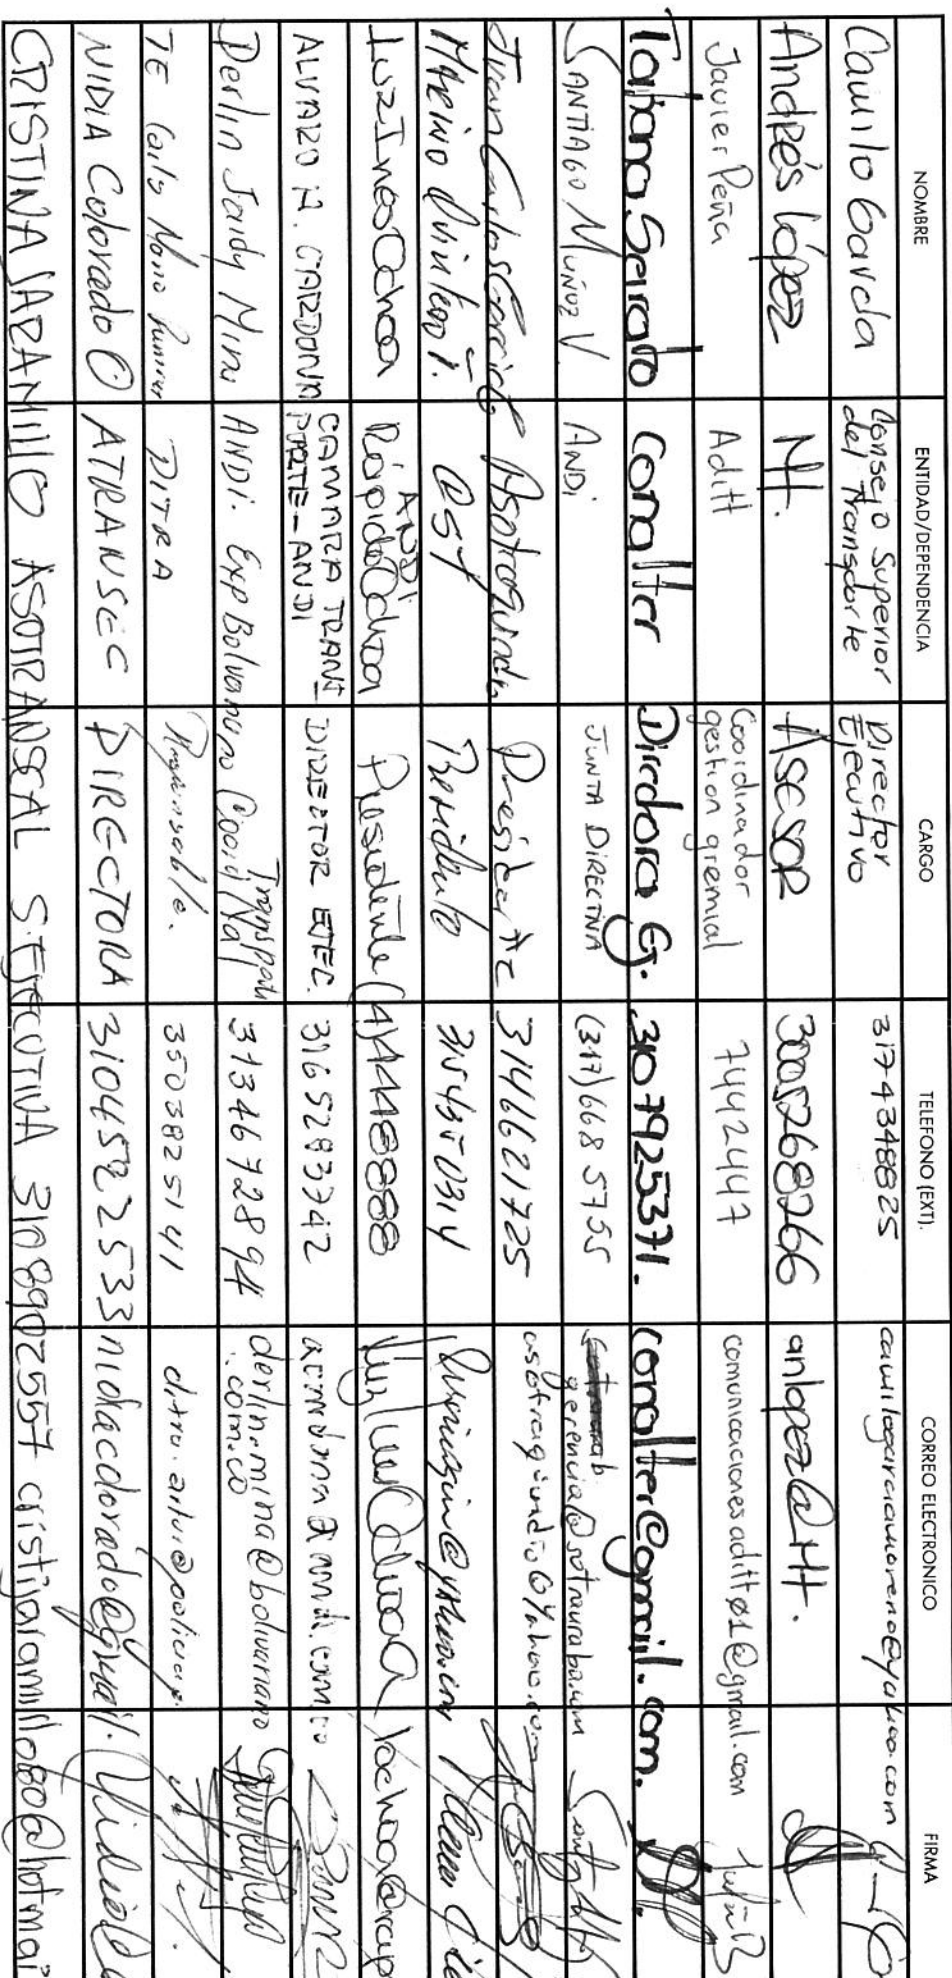 NOMBRE ENTIDAD/DEPENDENCIA CARGO TELEFONO (EXT). CORREO ELECTRONICO FIRMA
Camilo García Consejo Superior del Transporte Director Ejecutivo 3174348825 camilogarciamoreno@yahoo.com
Andrés López MT. ASESOR 3005268266 anlopez@MT.
Javier Peña Aditt Coordinador gestion gremial 7442447 comunicacionesaditt01@gmail.com
Tatiana Serrato Conalter Directora Ej. 3107925371. conalter@gmail.com.
SANTIAGO MUÑOZ V. ANDI JUNTA DIRECTIVA (317) 668 5755 gerencia@sotrauraba.com
Juan Carlos Asotraquindio Presidente 3146621725 asotraquindio@yahoo.com
Marino Quintero CST Presidente 3154350314
Luz Ines Ochoa ANDI. Rápido Ochoa Presidente (4)4448888 Luz Ines Ochoa
ALVARO H. CARDONA CAMARA TRANS PORTE-ANDI DIRECTOR EJEC. 3165283742 acardona@andi.com.co
Derlin Jaidy Mina ANDI. Exp Bolivariano Coord Nal 3134672894 derlin.mina@bolivariano.com.co
TE Carlos DITRA Responsable. 3503825141
NIDIA Colorado O ATRANSEC DIRECTORA 3104592533 nidiacolorado@gmail.
CRISTINA JARAMILLO ASOTRANSCAL S. EJECUTIVA 3108902557 cristijaramillo80@hotmai